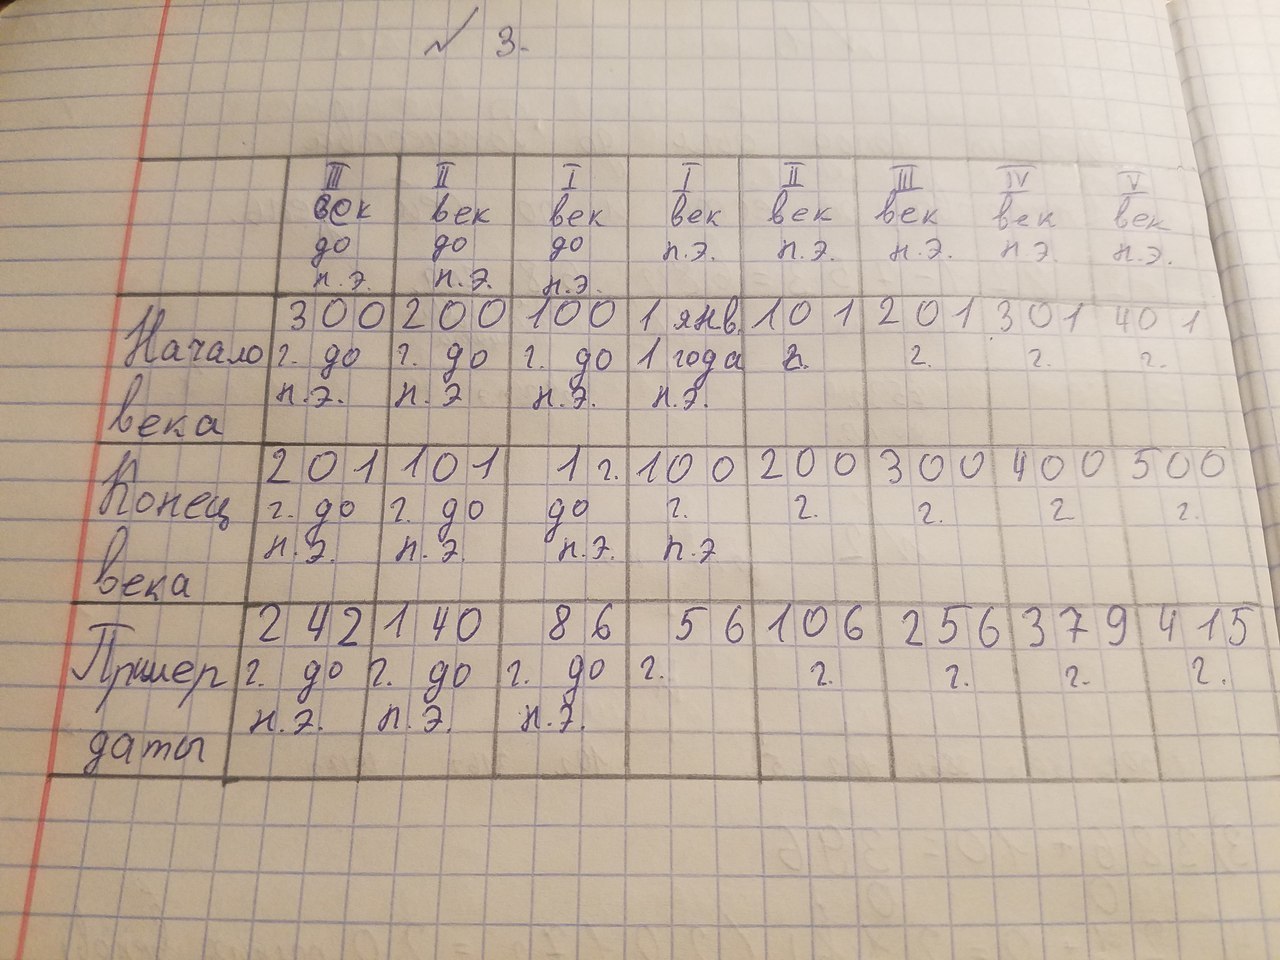 № 3.
III век до н.э. II век до н.э. I век до н.э. I век н.э. II век н.э. III век н.э. IV век н.э. V век н.э.
Начало века 300 г. до н.э. 200 г. до н.э 100 г. до н.э. 1 янв. 1 года н.э. 101 г. 201 г. 301 г. 401 г.
Конец века 201 г. до н.э. 101 г. до н.э. 1 г. до н.э. 100 г. н.э 200 г. 300 г. 400 г 500 г.
Пример даты 242 г. до н.э. 140 г. до н.э. 86 г. до н.э. 56 г. 106 г. 256 г. 379 г. 415 г.